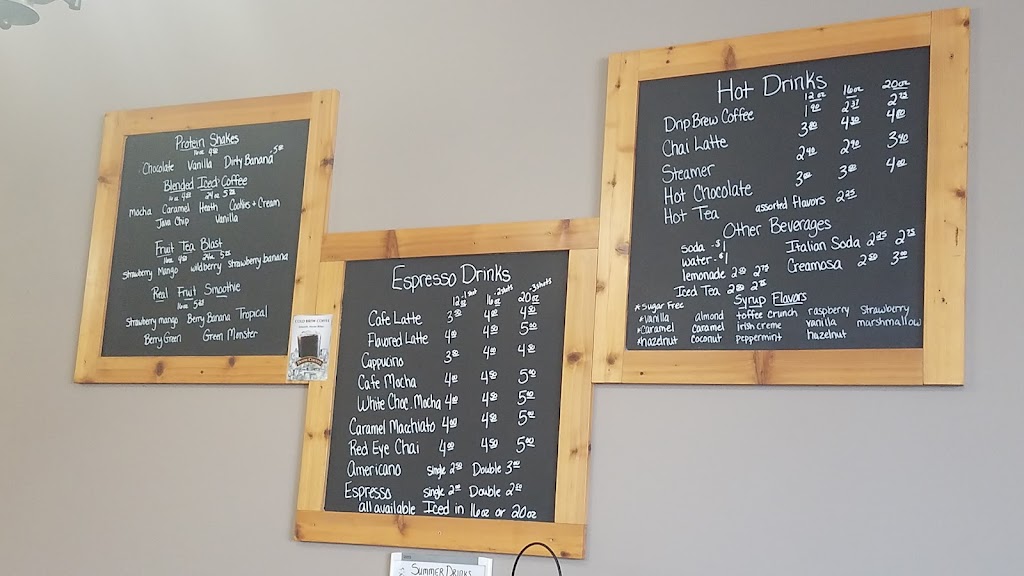 Protein Shakes
16 oz 4.50
Chocolate Vanilla Dirty Banana
Blended Iced Coffee
16 oz 4.50 24 oz 5.50
mocha Caramel Heath Cookies + Cream
Java Chip Vanilla
Fruit Tea Blast
16oz 24oz
Strawberry Mango wildberry strawberry banana
Real Fruit Smoothie
16oz
Strawberry mango Berry Banana Tropical
Berry Green Green Monster
COLD BREW COFFEE
Espresso Drinks
12oz 1shot 16oz 2shots 20oz 3shots
Cafe Latte 3 4 4
Flavored Latte 4 4 5
Cappucino 3 4 4
Cafe Mocha 4 4 5
White Choc. Mocha 4 4 5
Caramel Macchiato 4 4 5
Red Eye Chai 4 4 5
Americano Single 2 Double 3
Espresso Single 2 Double 2
all available Iced in 16oz or 20oz
SUMMER DRINKS
Hot Drinks
12oz 16oz 20oz
Drip Brew Coffee 1 2 2
Chai Latte 3 4 4
Steamer 2 2 3
Hot Chocolate 3 3 4
Hot Tea assorted flavors 2.25
Other Beverages
soda - $1
water - $1
lemonade
Iced Tea
Italian Soda 2.25 2.75
Creamosa 2.50 3.00
Syrup Flavors
*Sugar Free
*Vanilla almond toffee crunch raspberry Strawberry
*Caramel caramel irish creme vanilla marshmallow
*hazelnut coconut peppermint hazelnut